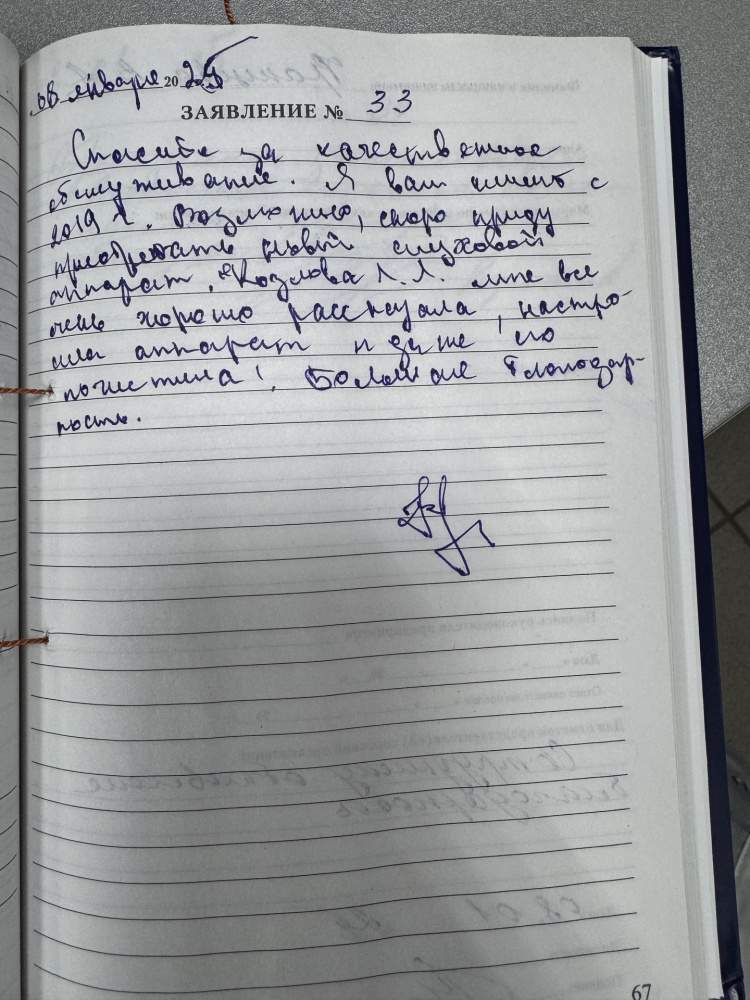 08 января 2025
ЗАЯВЛЕНИЕ № 33
Спасибо за качественное
обслуживание. Я ваш клиент с
2019 г. Возможно, скоро приду
приобретать новый слуховой
аппарат. Козлова Л.Л. мне все
очень хорошо рассказала, настро-
ила аппарат и даже его
почистила! Большая благодар-
ность.
67